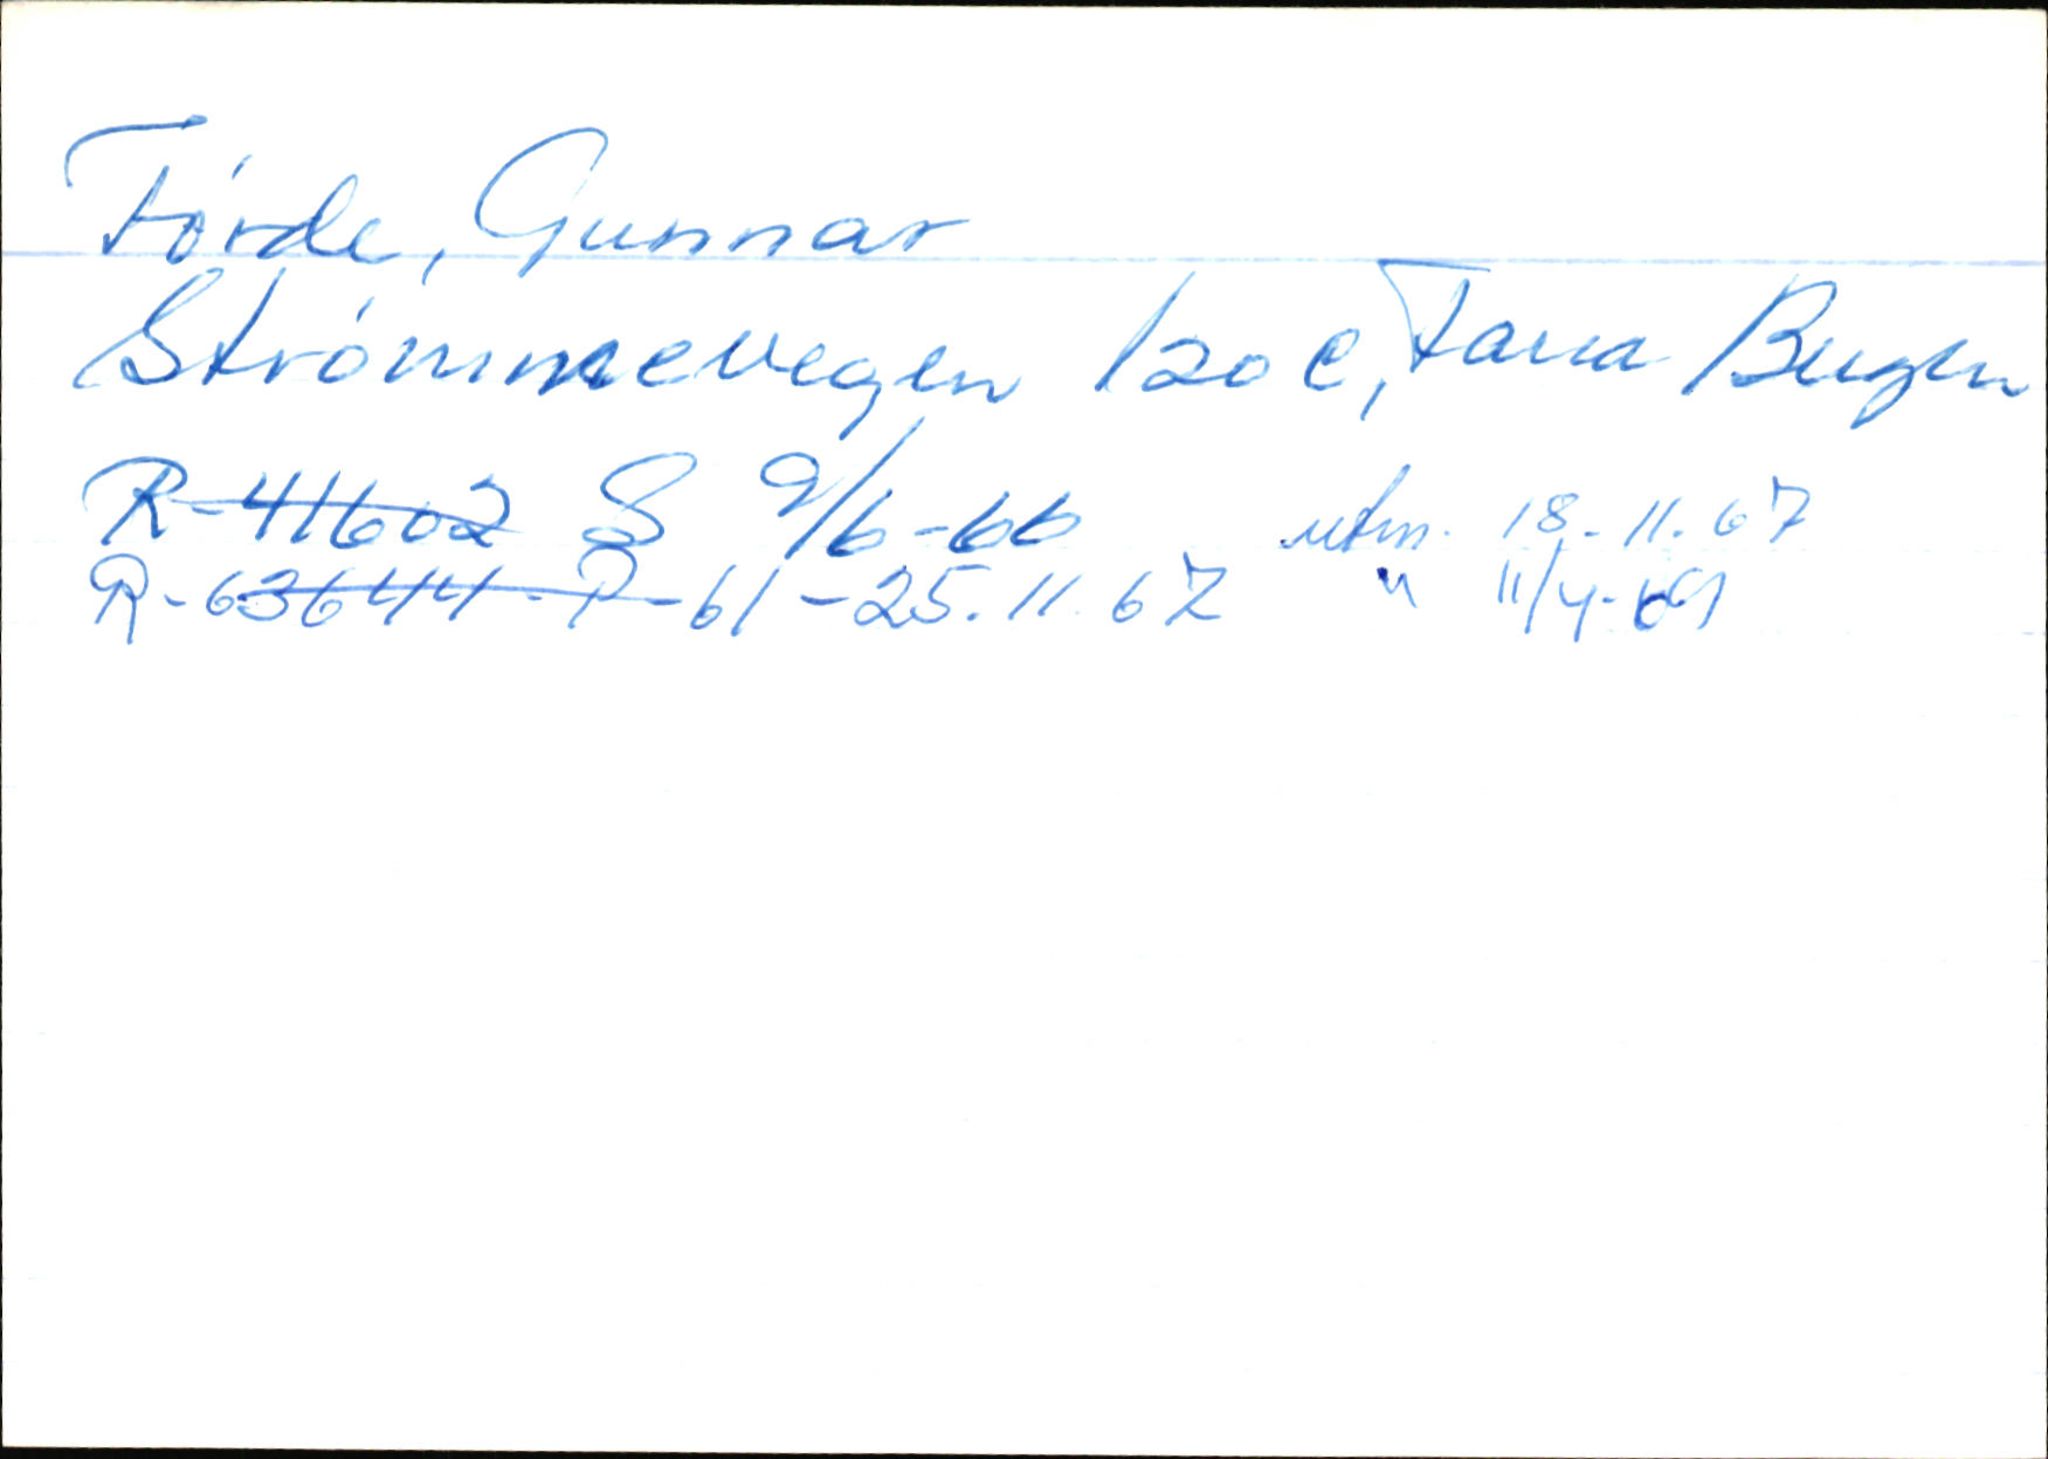 Förde, Gunnar
Strömmevegen 120 C, Fana Bergen
R-41602 S 9/6-66 utm. 18-11.67
R-63644-P-61-25.11.67 " 11/4-69